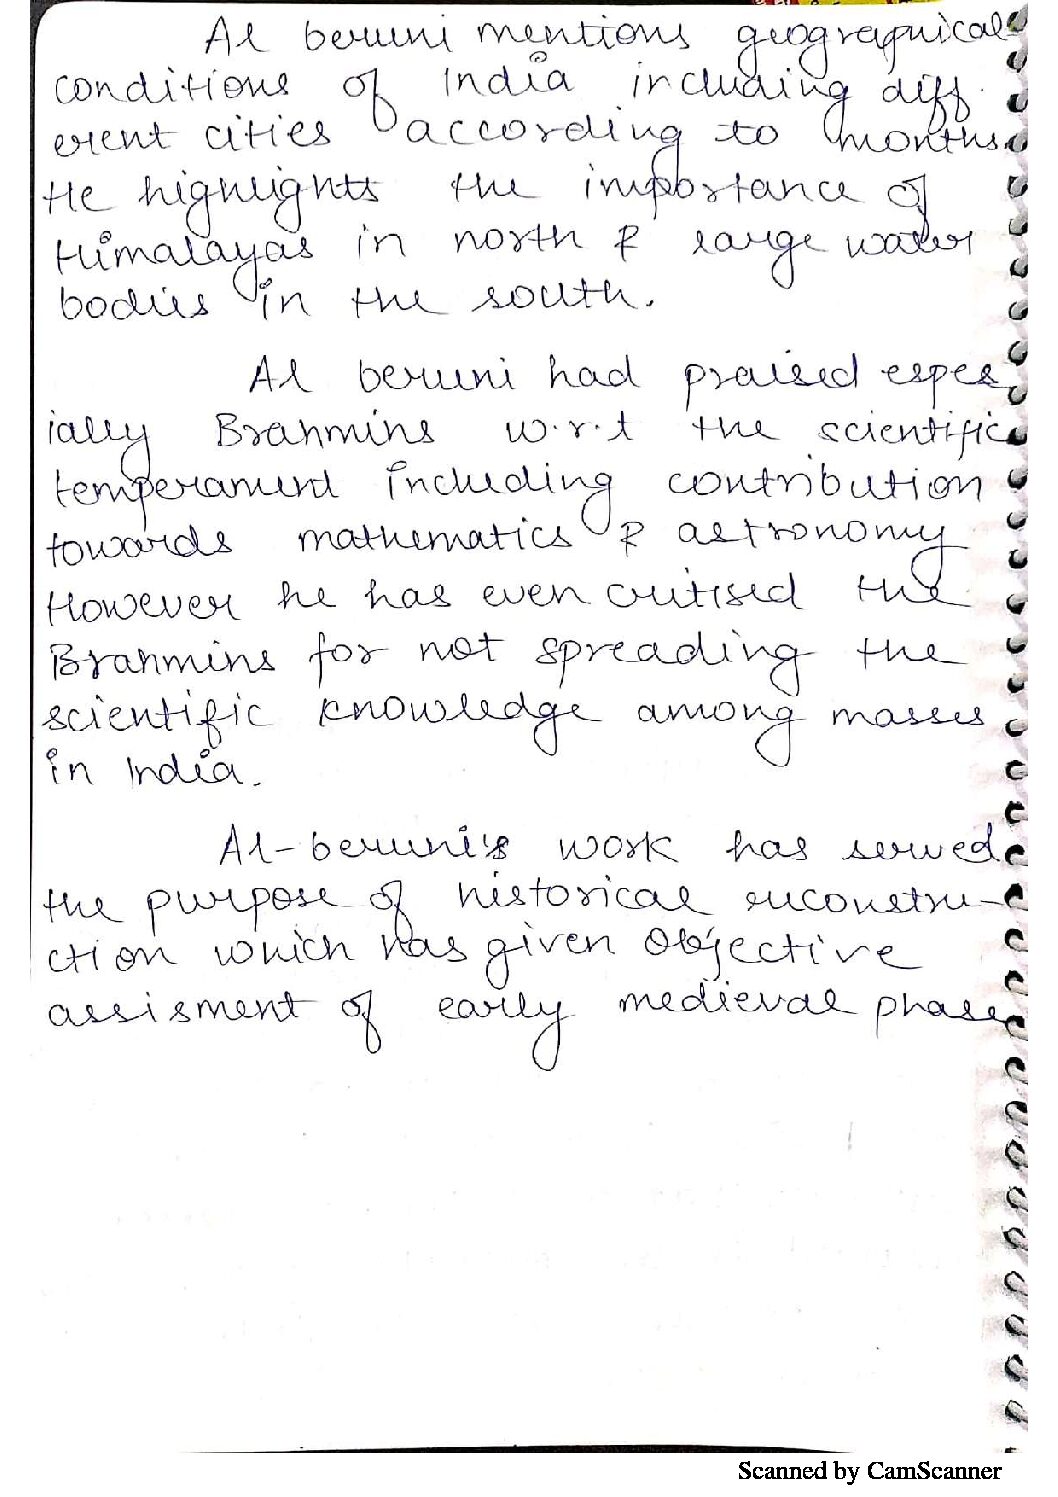 Al beruni mentions geographical
conditions of India including diff
erent cities according to months.
He highlights the importance of
Himalayas in north & large water
bodies in the south.
Al beruni had praised espec
ially Brahmins w.r.t the scientific
temperament including contribution
towards mathematics & astronomy
However he has even critised the
Brahmins for not spreading the
scientific knowledge among masses
in India.
Al-beruni's work has served
the purpose of historical reconstru-
ction which has given objective
assisment of early medieval phase
Scanned by CamScanner